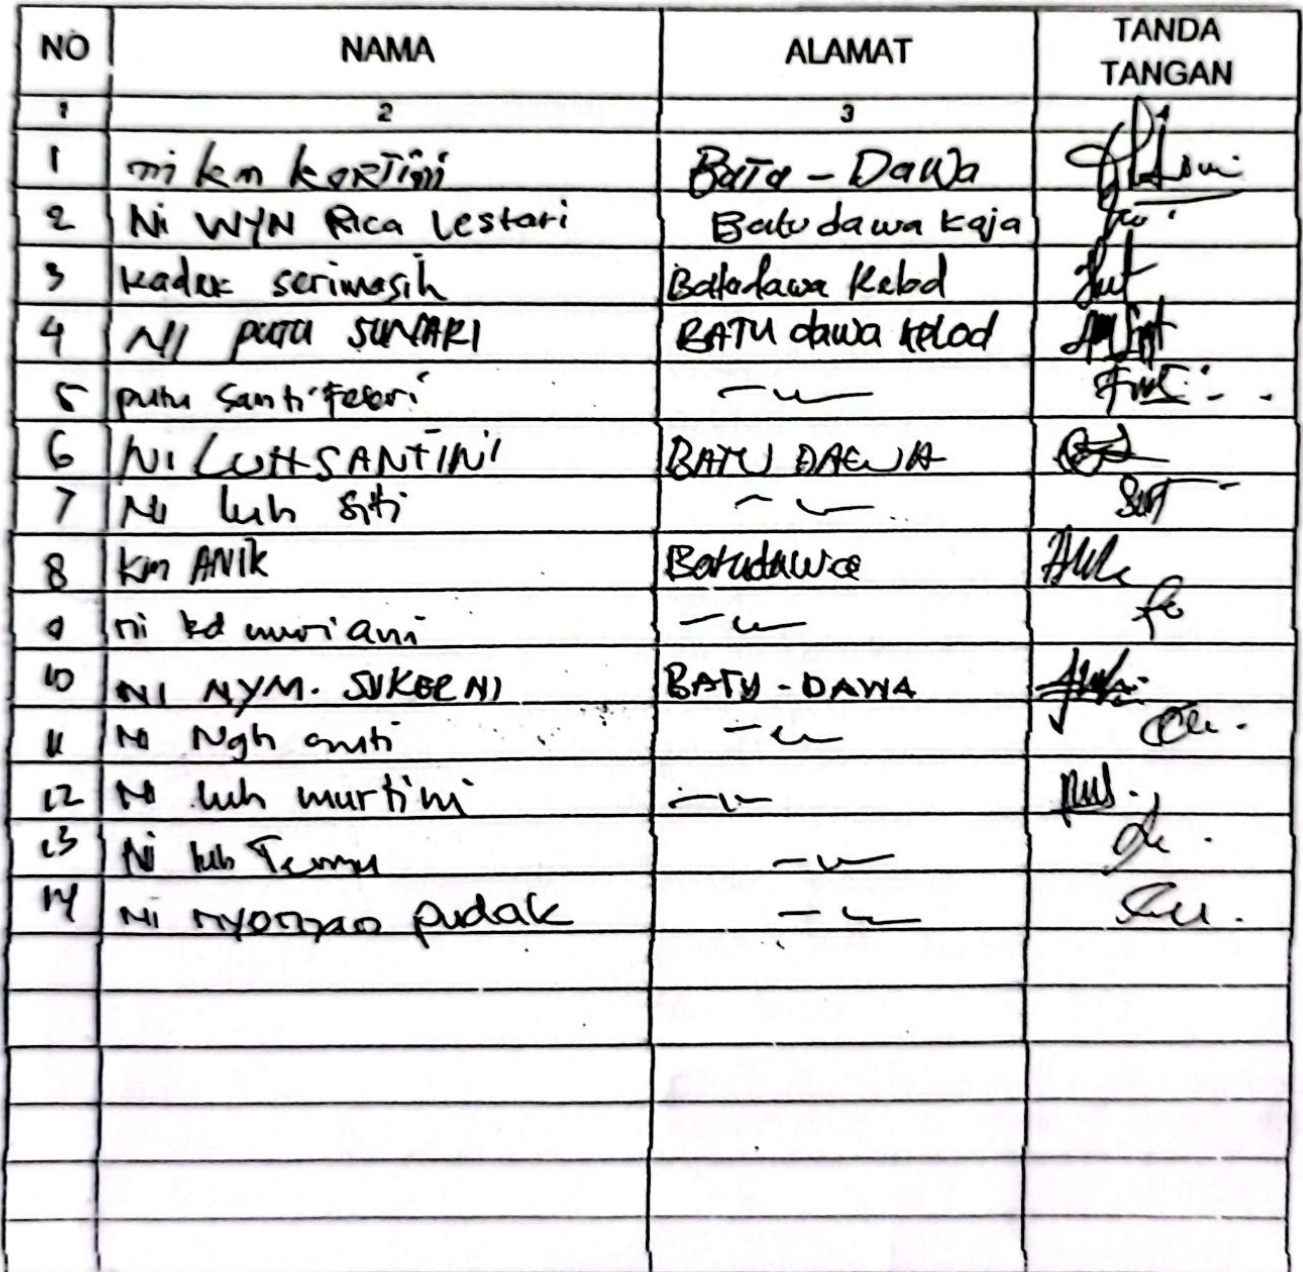 NO NAMA ALAMAT TANDA TANGAN
1 2 3 4
1 ni km kartini Bata - Dawa
2 Ni WYN Rica Lestari Batu dawa Kaja
3 kadek serimasih Batudawa Kelod
4 NI putu SUNTARI BATU dawa kelod
5 putu Santi
6 NI LUH SANTINI BATU DAEWA
7 Ni luh Siti
8 km ANIK Batudawa
9 ni kd muriani
10 NI NYM. SUKERNI BATU - DAWA
11 Ni Ngh
12 Ni luh murtini
13 Ni luh
14 Ni nyoman pudak